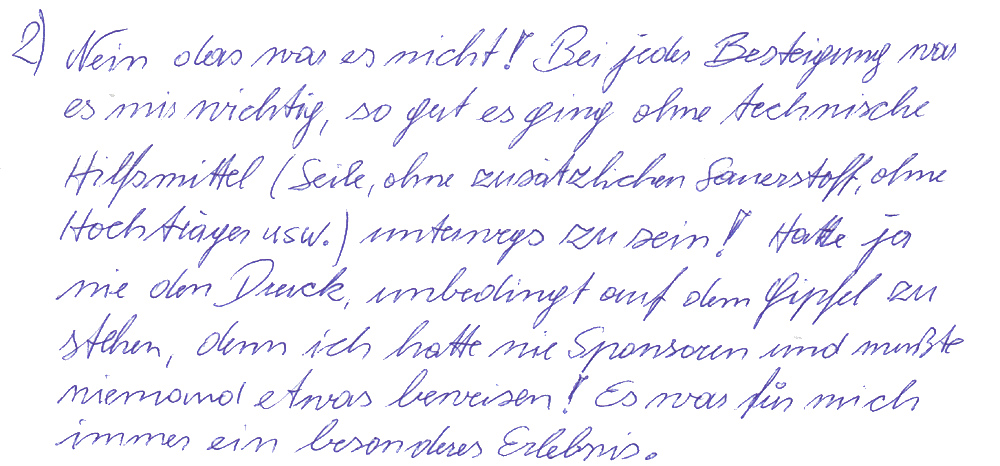 2) Nein das war es nicht! Bei jeder Besteigung war
es mir wichtig, so gut es ging ohne technische
Hilfsmittel (Seile, ohne zusätzlichen Sauerstoff, ohne
Hochträger usw.) unterwegs zu sein! Hatte ja
nie den Druck, unbedingt auf dem Gipfel zu
stehen, denn ich hatte nie Sponsoren und mußte
niemand etwas beweisen! Es war für mich
immer ein besonderes Erlebnis.